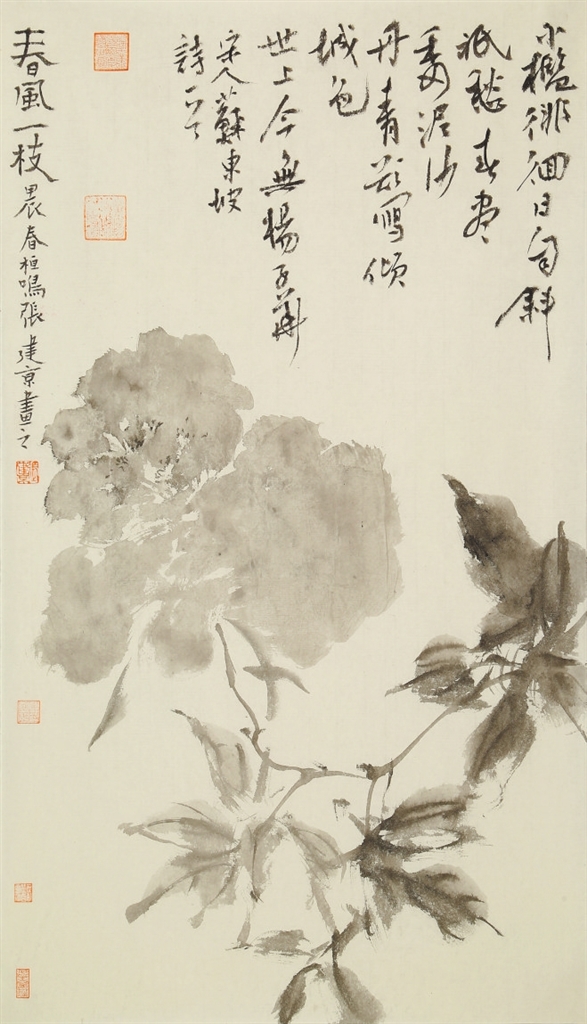 小檻徘徊日自斜
祇愁春盡
委泥沙
丹青欲寫傾
城色
世上今無楊子華
宋人蘇東坡
詩一首
春風一枝 春桓鳴張建京畫之